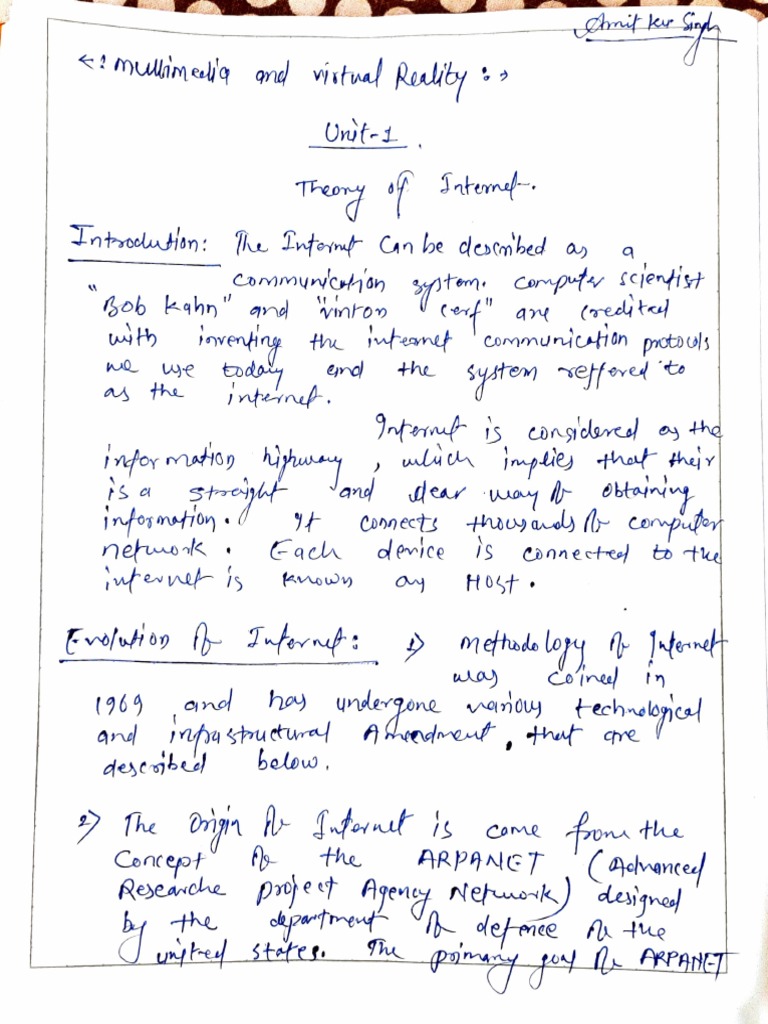 Amit Kr Singh
<: Multimedia and virtual Reality :>
Unit-1
Theory of Internet.
Introdution: The Internet Can be described as a
communication system. computer scientist
"Bob Kahn" and "vinton cerf" are credited
with inventing the internet communication protocols
we use today and the system reffered to
as the internet.
Internet is considered as the
information highway, which implies that their
is a straight and clear way of obtaining
information. It connects thousands of computer
network. Each device is connected to the
internet is known as HOST.
Evolution of Internet: 1) methodology of Internet
was coined in
1969 and has undergone various technological
and infrastructural Amendment, that are
described below.
2) The Origin of Internet is come from the
Concept of the ARPANET (Advanced
Researche project Agency Network) designed
by the department of defence of the
united states. The primary goal of ARPANET